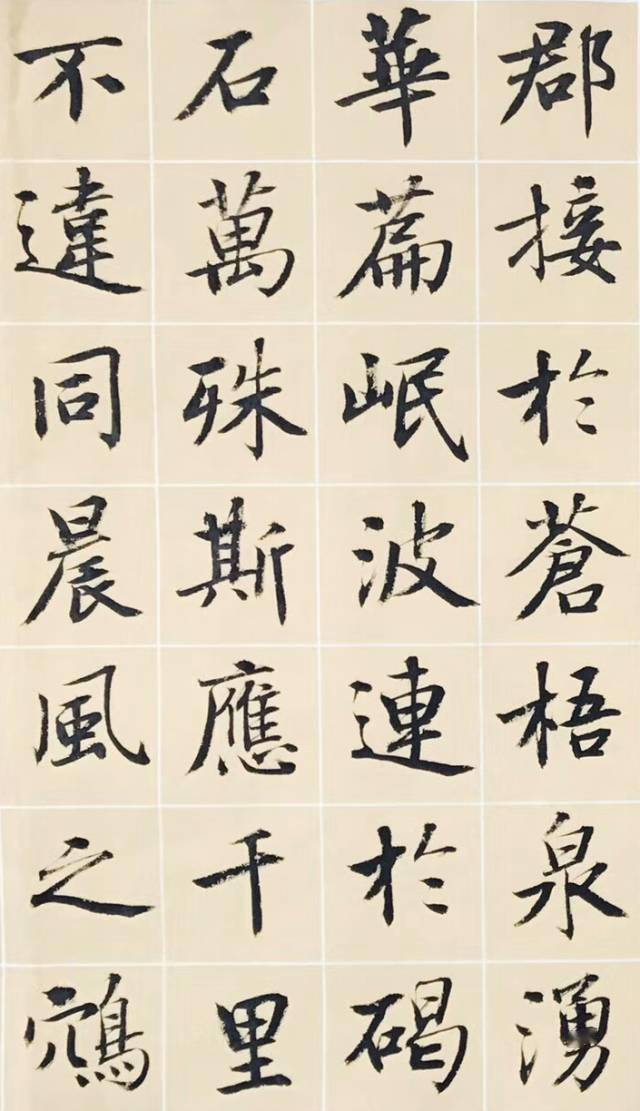 郡接於蒼梧泉湧
華篇岷波連於碣
石萬殊斯應千里
不違同晨風之鴪